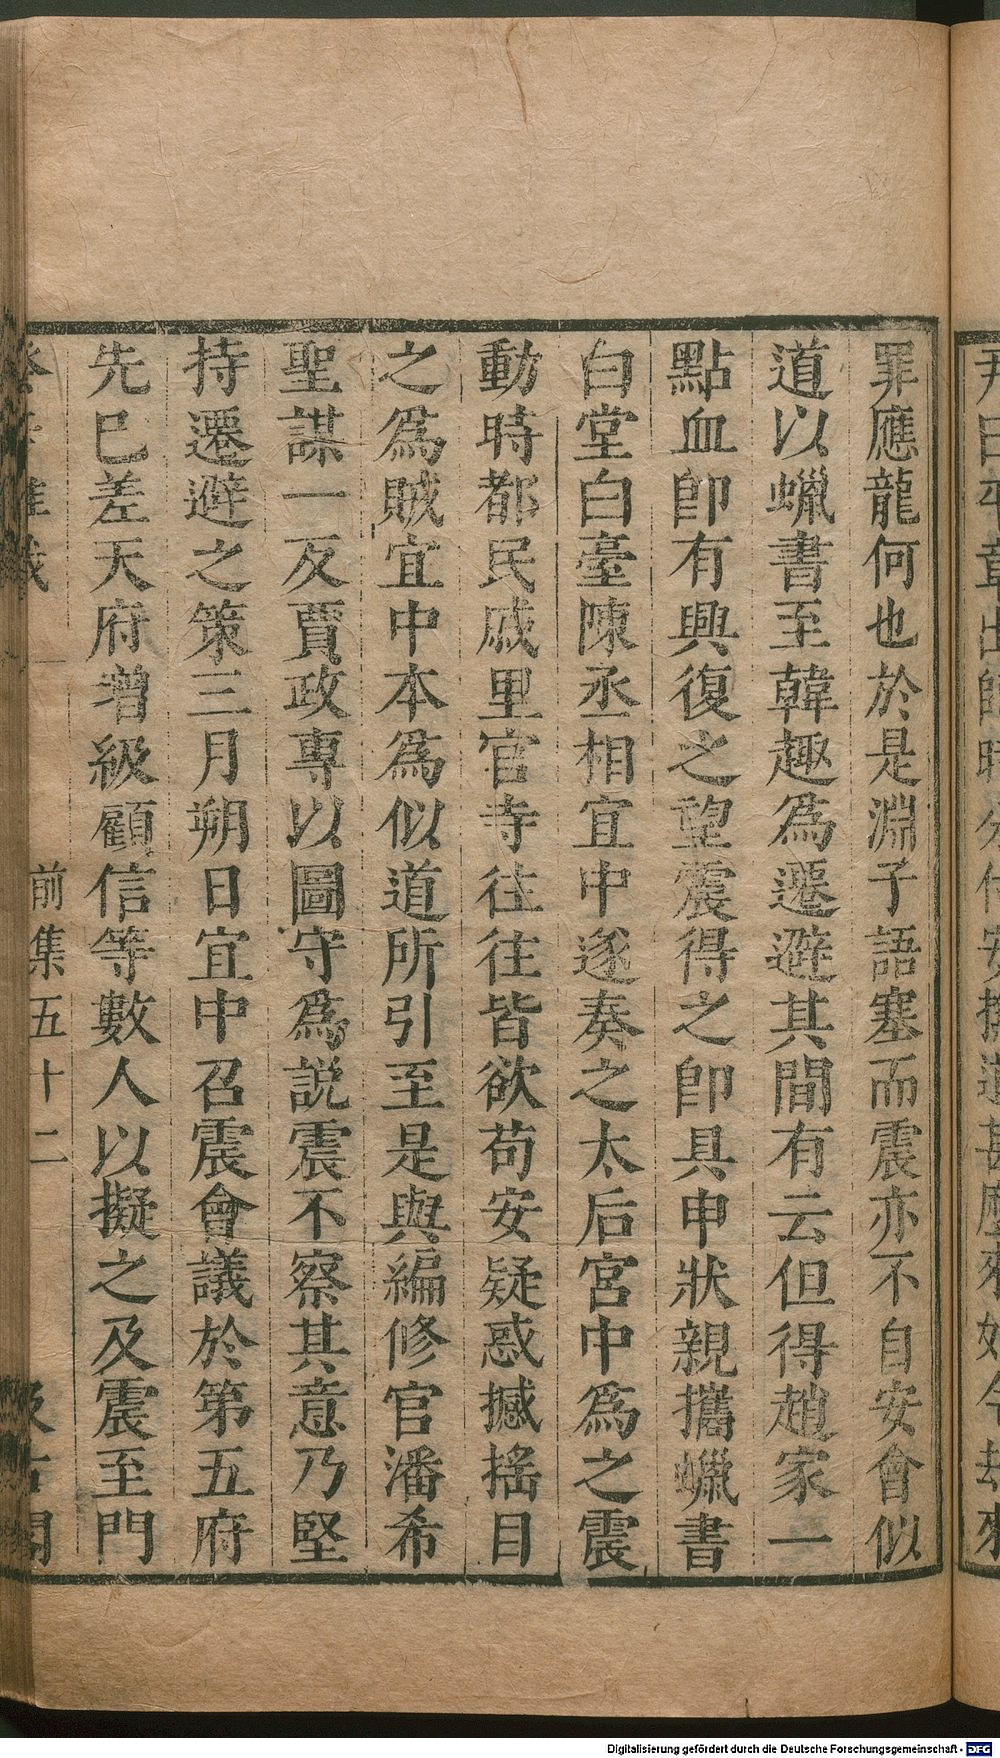 罪應龍何也於是淵子語塞而震亦不自安會似
道以蠟書至韓趣爲遷避其間有云但得趙家一
點血卽有興復之望震得之卽具申狀親攜蠟書
白堂白臺陳丞相宜中遂奏之太后宮中爲之震
動時都民戚里官寺往往皆欲苟安疑惑撼搖目
之爲賊宜中本爲似道所引至是與編修官潘希
聖謀一反賈政專以圖守爲説震不察其意乃堅
持遷避之策三月朔日宜中召震會議於第五府
先巳差天府增級顧信等數人以擬之及震至門
前集五十二
Digitalisierung gefördert durch die Deutsche Forschungsgemeinschaft - DFG